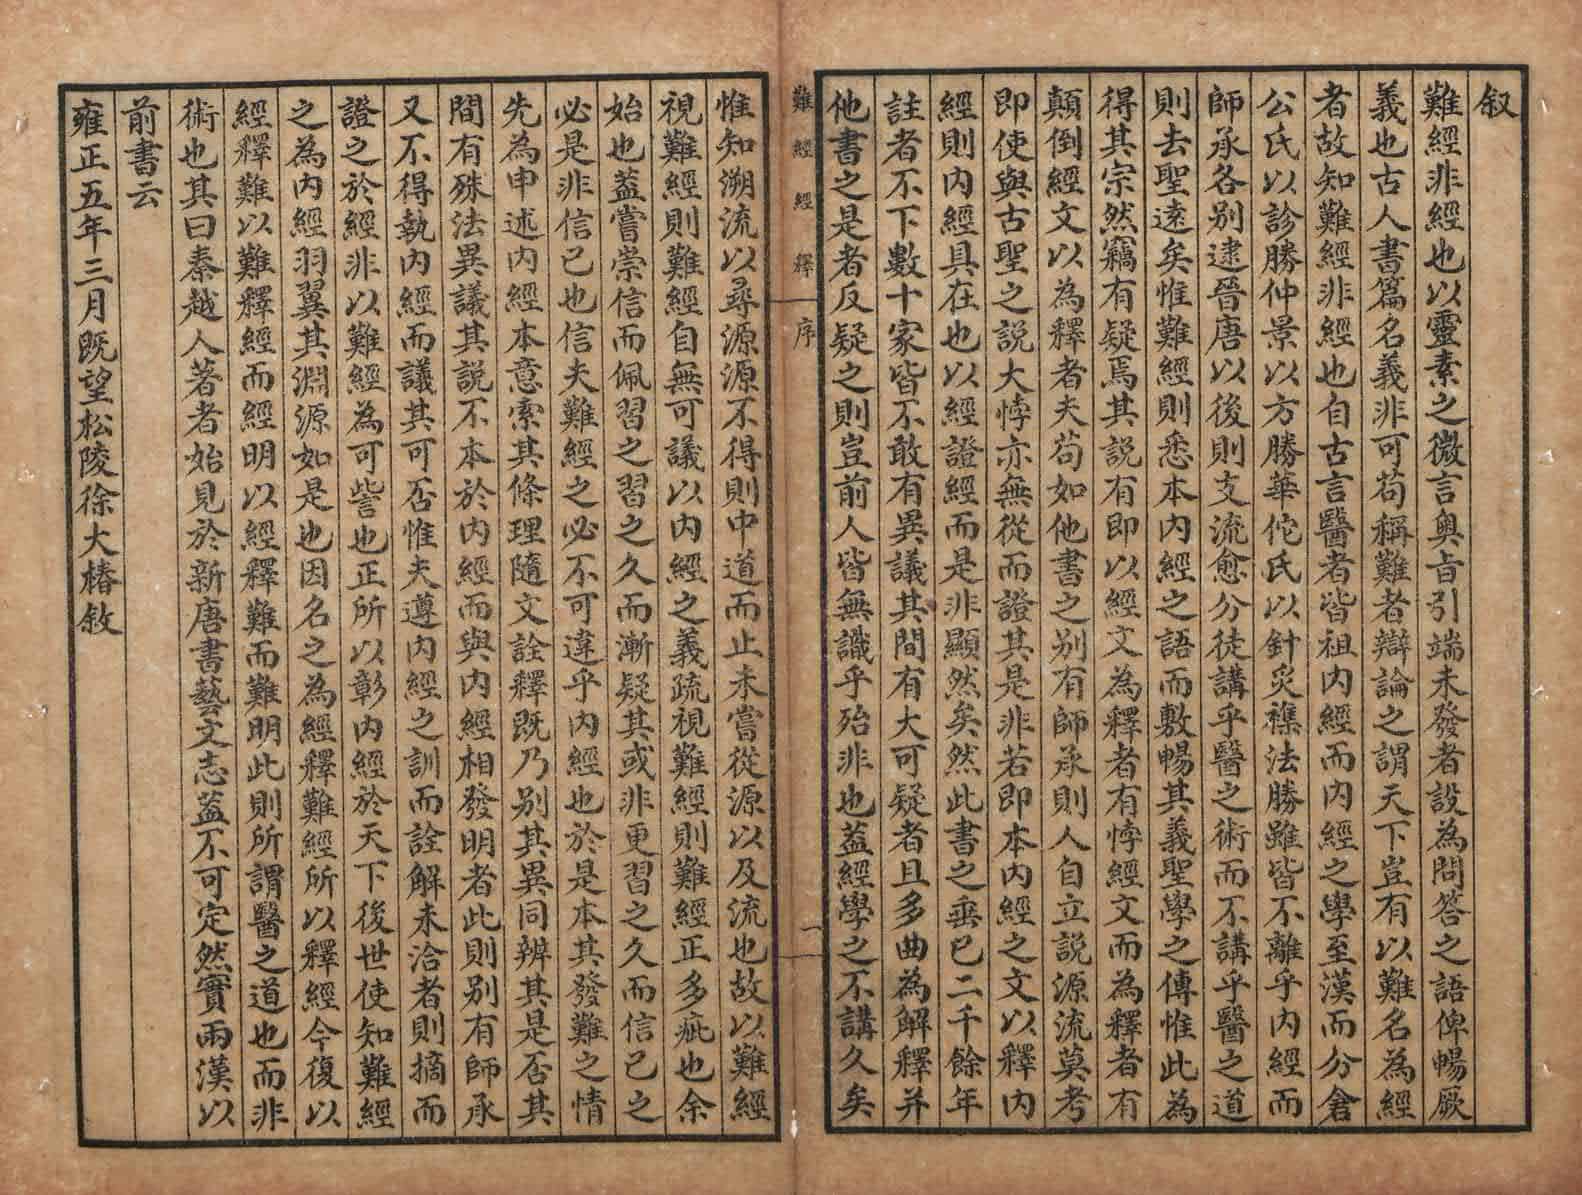 叙
難經非經也以靈素之微言奥旨引端未發者設為問答之語俾暢厥
義也古人書篇名義非可苟稱難者辯論之謂天下豈有以難名為經
者故知難經非經也自古言醫者皆祖内經而内經之學至漢而分倉
公氏以診勝仲景以方勝華佗氏以針灸襍法勝雖皆不離乎内經而
師承各别逮晉唐以後則支流愈分徒講乎醫之術而不講乎醫之道
則去聖遠矣惟難經則悉本内經之語而敷暢其義聖學之傳惟此為
得其宗然竊有疑焉其説有即以經文為釋者有悖經文而為釋者有
顛倒經文以為釋者夫苟如他書之别有師承則人自立説源流莫考
即使與古聖之説大悖亦無從而證其是非若即本内經之文以釋内
經則内經具在也以經證經而是非顯然矣然此書之垂已二千餘年
註者不下數十家皆不敢有異議其間有大可疑者且多曲為解釋并
他書之是者反疑之則豈前人皆無識乎殆非也蓋經學之不講久矣
難經經釋　序　一
惟知溯流以尋源源不得則中道而止未嘗從源以及流也故以難經
視難經則難經自無可議以内經之義疏視難經則難經正多疵也余
始也蓋嘗崇信而佩習之習之久而漸疑其或非更習之久而信已之
必是非信已也信夫難經之必不可違乎内經也於是本其發難之情
先為申述内經本意索其條理隨文詮釋既乃别其異同辨其是否其
間有殊法異議其説不本於内經而與内經相發明者此則别有師承
又不得執内經而議其可否惟夫遵内經之訓而詮解未洽者則摘而
證之於經非以難經為可訾也正所以彰内經於天下後世使知難經
之為内經羽翼其淵源如是也因名之為經釋難經所以釋經今復以
經釋難以難釋經而經明以經釋難而難明此則所謂醫之道也而非
術也其曰秦越人著者始見於新唐書藝文志蓋不可定然實兩漢以
前書云
雍正五年三月既望松陵徐大椿敘